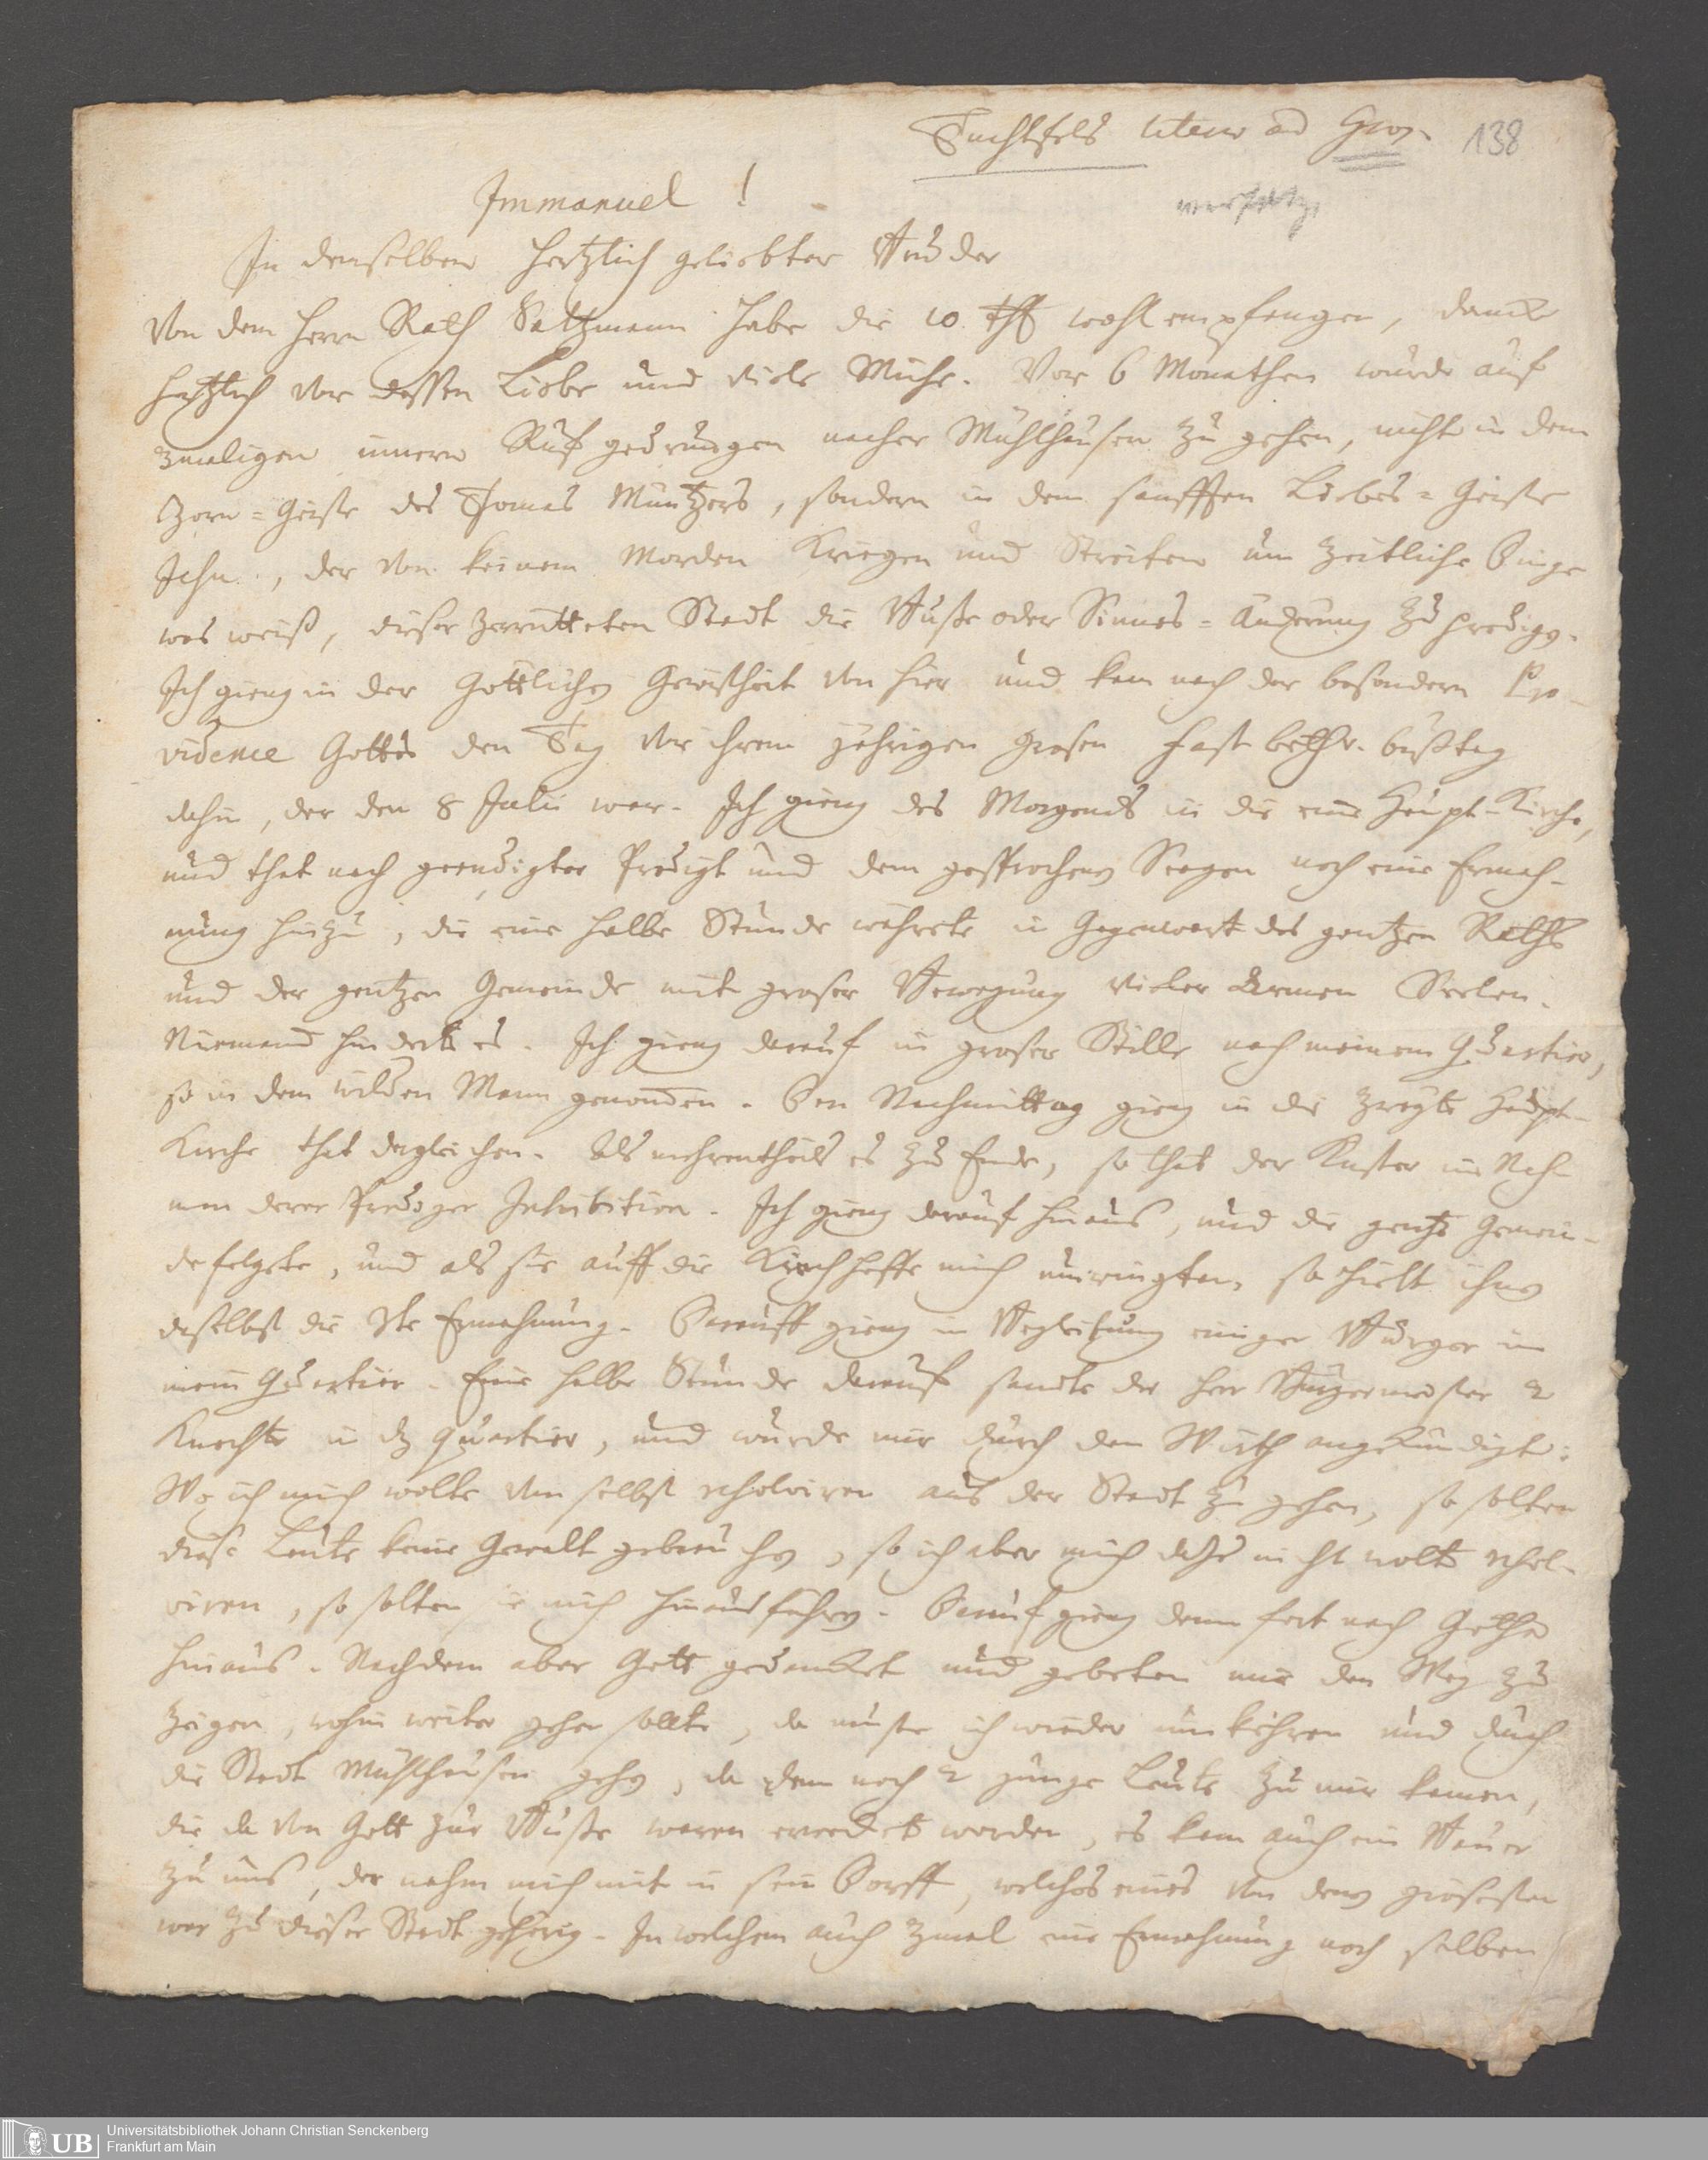 Tuchtfelds literae ad Gros. 138
Immanuel!
In demselben hertzlich geliebter Bruder
Von dem Herrn Rath Saltzmann habe die 10 wohl empfangen, dancke
hertzlich vor dessen Liebe und viele Mühe. Vor 6 Monathen wurde auf
2maligen innern Ruf gedrungen nacher Mühlhausen zu gehen, nicht in dem
Zorn-Geiste des Thomas Müntzers, sondern in dem sanfften Liebes-Geiste
Jesu, der von keinem Morden Kriegen und Streiten um zeitliche Dinge
was weiß, dieser zerrütteten Stadt die Buße oder Sinnes-Änderung zu predigen.
Ich gieng in der Göttlichen Gewißheit von hier und kam nach der besondern Pro-
vidence Gottes den Tag vor ihrem jährigen grosen Fast beth u. bußtag
dahin, der den 8 Julii war. Ich gieng des Morgends in die eine Haupt-Kirche,
und that nach geendigter Predigt und dem gesprochenen Seegen noch eine Ermah-
nung hinzu, die eine halbe Stunde währete in Gegenwart des gantzen Raths
und der gantzen Gemeinde mit groser Bewegung vieler armen Seelen.
Niemand hinderte es. Ich gieng darauf in groser Stille nach meinem Quartier,
so in dem wilden Mann genommen. Den Nachmittag gieng in die zweyte Haupt-
Kirche that dergleichen. Als mehrentheils es zu Ende, so that der Küster im Nah-
men derer Prediger Inhibition. Ich gieng darauf hinaus, und die gantze Gemein-
de folgete, und als sie auff die Kirchhoffe mich umringten, so hielt ihnen
daselbst die 3te Ermahnung. Darauff gieng in Begleitung einiger Bürger in
mein Quartier. Eine halbe Stunde darauf sandte der Herr Burgermeister 2
Knechte in dz Quartier, und wurde mir durch den Wirth angekündigt:
Wo ich mich wolte von selbst resolviren aus der Stadt zu gehen, so solten
diese Leute keine Gewalt gebrauchen, so ich aber mich dazu nicht wolte resol-
viren, so solten sie mich hinausführen. Darauf gieng denn fort nach Gotha
hinaus. Nachdem aber Gott gedancket und gebeten mir den Weg zu
zeigen, wohin weiter gehen sollte, da muste ich wieder umkehren und durch
die Stadt Mühlhausen gehen, da denn noch 2 junge Leute zu mir kamen,
die da von Gott zur Buße waren erwecket worden, es kam auch ein Bauer
zu uns, der nahm mich mit in sein Dorff, welches eines von denen grösesten
war zu dieser Stadt gehörig. In welchem auch 2mal eine Ermahnung nach selben
UB Universitätsbibliothek Johann Christian Senckenberg
Frankfurt am Main